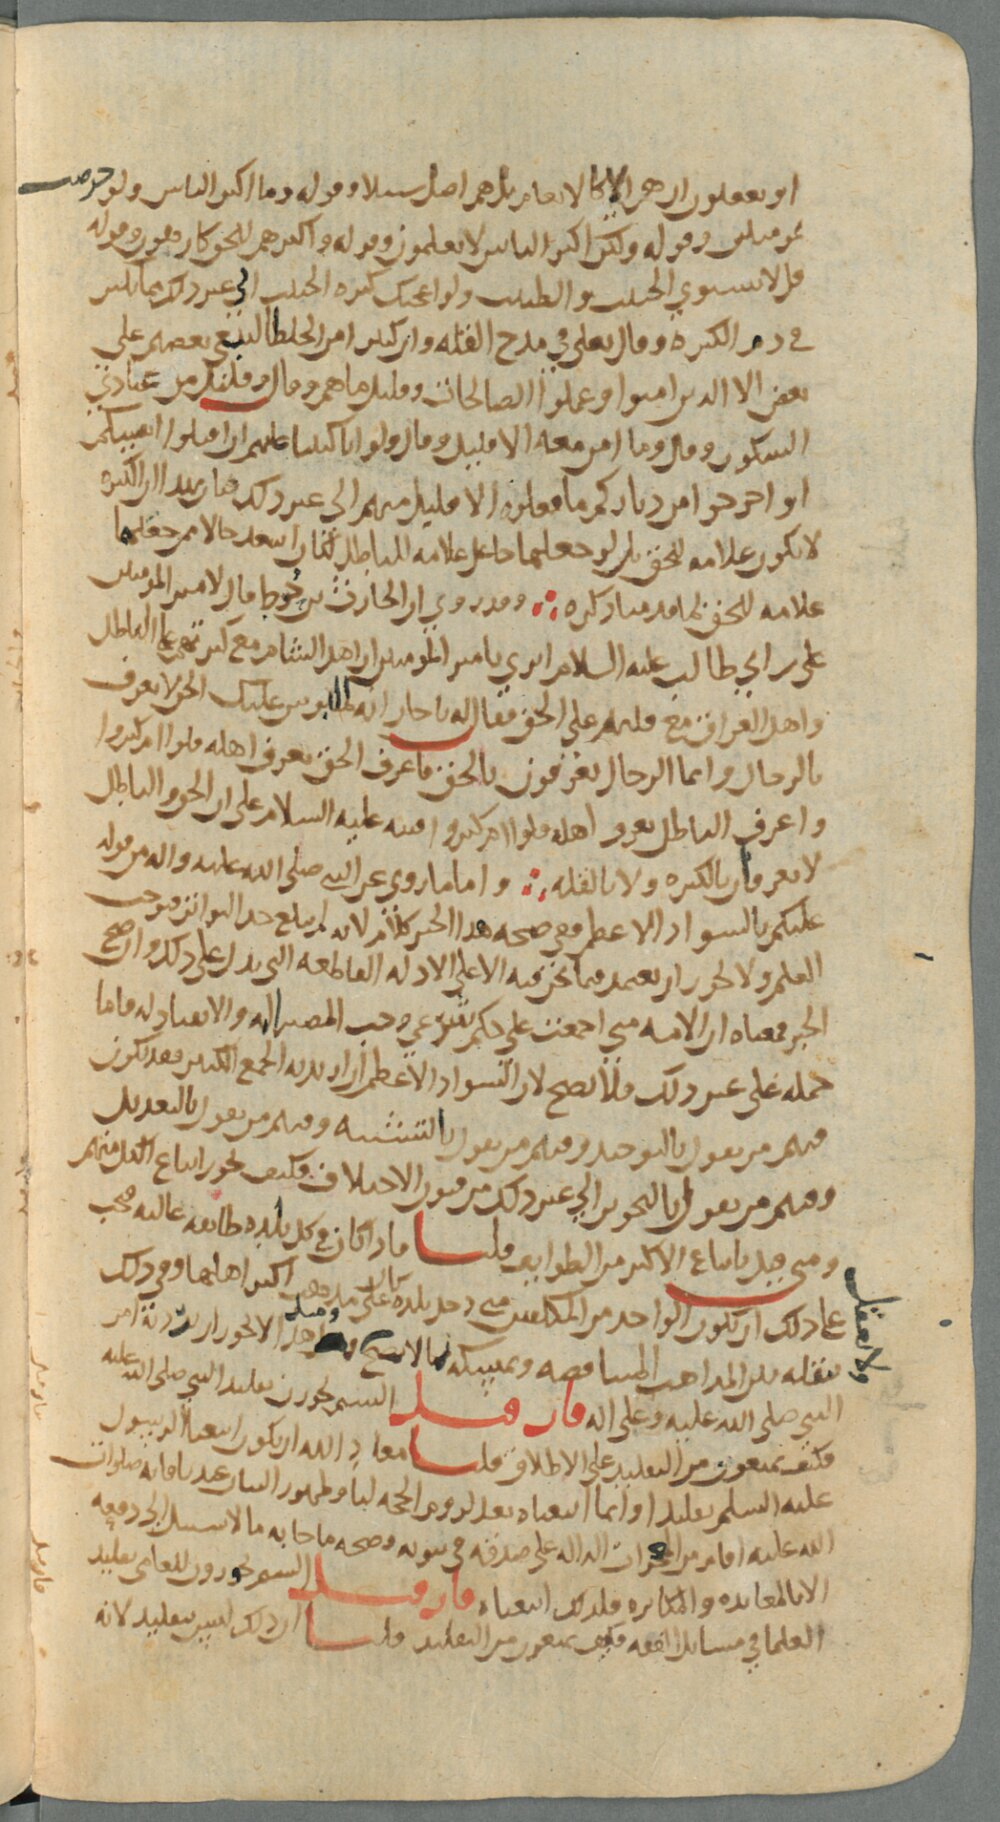 او يعقلون ان هم الا كالانعام بل هم اضل سبيلا وقوله وما اكثر الناس ولو حرصت
بمومنين وقوله ولكن اكثر الناس لا يعلمون وقوله واكثرهم للحق كارهون وقوله
قل لا يستوي الخبيث والطيب ولو اعجبك كثرة الخبيث الى غير ذلك مما يكثر
في ذم الكثره وقال تعلى في مدح القله وان كثيرا من الخلطا ليبغي بعضهم على
بعض الا الذين امنوا وعملوا الصالحات وقليل ما هم وقال وقليل من عبادي
الشكور وقال وما امن معه الا قليل وقال ولو انا كتبنا عليهم ان اقتلوا انفسكم
او اخرجوا من دياركم ما فعلوه الا قليل منهم الى غير ذلك فبان بهذا ان الكثره
لا تكون علامه للحق بل لو جعلها جاعل علامه للباطل لكان اسعد حالا ممن جعلها
علامه للحق لما قدمنا ذكره ∴ وقد روي ان الحارث بن حوط قال لامير المومنين
علي بن ابي طالب عليه السلام اترى يا امير المومنين ان اهل الشام مع كثرتهم على الباطل
واهل العراق مع قلتهم على الحق فقال له يا حار انه لملبوس عليك الحق لا يعرف
بالرجال وانما الرجال يعرفون بالحق فاعرف الحق تعرف اهله قلوا ام كثروا
واعرف الباطل تعرف اهله قلوا ام كثروا فنبه عليه السلام على ان الحق والباطل
لا يعرفان بالكثره ولا بالقله ∴ واما ما روي عن النبي صلى الله عليه واله من قوله
عليكم بالسواد الاعظم ففي صحه هذا الخبر كلام لانه لم يبلغ حد التواتر فيوجب
العلم ولا يجوز ان يعتمد فيما نحن فيه الا على الادله القاطعه التي تدل على ذلك وان صح
الخبر فمعناه ان الامه متى اجمعت على حكم شرعي وجب المصير اليه والانقياد له فاما
حمله على غير ذلك فلا يصح لان السواد الاعظم ان اريد به الجمع الكثير فقد يكون
فيهم من يقول بالتوحيد وفيهم من يقول بالتشبيه وفيهم من يقول بالتعديل
وفيهم من يقول بالتجوير الى غير ذلك من فنون الاختلاف فكيف يجوز اتباع الكل منهم
ومتى قيل باتباع الاكثر من الطوايف قلنا فاذا كان في كل بلده طايفه غالبه فيجب
على ذلك ان يكون الواحد من المكلفين متى دخل بلده كان على مذهب اكثر اهلها وفي ذلك
تنقله بين المذاهب المتناقضه وتمسكه بما لا يصح الا يجوز ان يرد به امر
ولا يعقل
النبي صلى الله عليه وعلى اله فان قيل الستم تجوزون تقليد النبي صلى الله عليه
فكيف تمنعون من التقليد على الاطلاق قلنا معاذ الله ان يكون اتباعنا الرسول
عليه السلم تقليدا وانما اتبعناه بعد لزوم الحجه لنا وظهور البيان عندنا فانه صلوات
الله عليه اقام من المعجزات الداله على صدقه في نبوته وصحه ما جا به ما لا سبيل الى دفعه
الا بالمعانده والمكابره فلذلك اتبعناه فان قيل الستم تجوزون للعامي تقليد
العلما في مسايل الفقه فكيف تمنعون من التقليد قلنا ان ذلك ليس بتقليد لانه